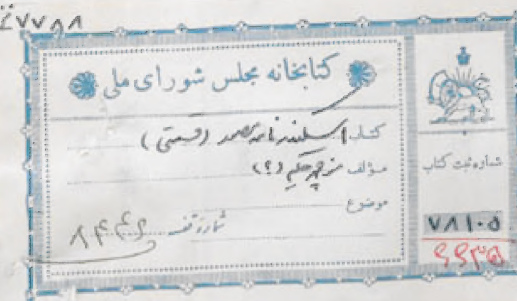 ۲۷۷۸۸
کتابخانه مجلس شورای ملی
کتاب اسکندرنامه (قسمتی)
مؤلف منوچهر حکیم (؟)
موضوع
شماره قفسه
شماره ثبت کتاب
۷۸۱۰۵